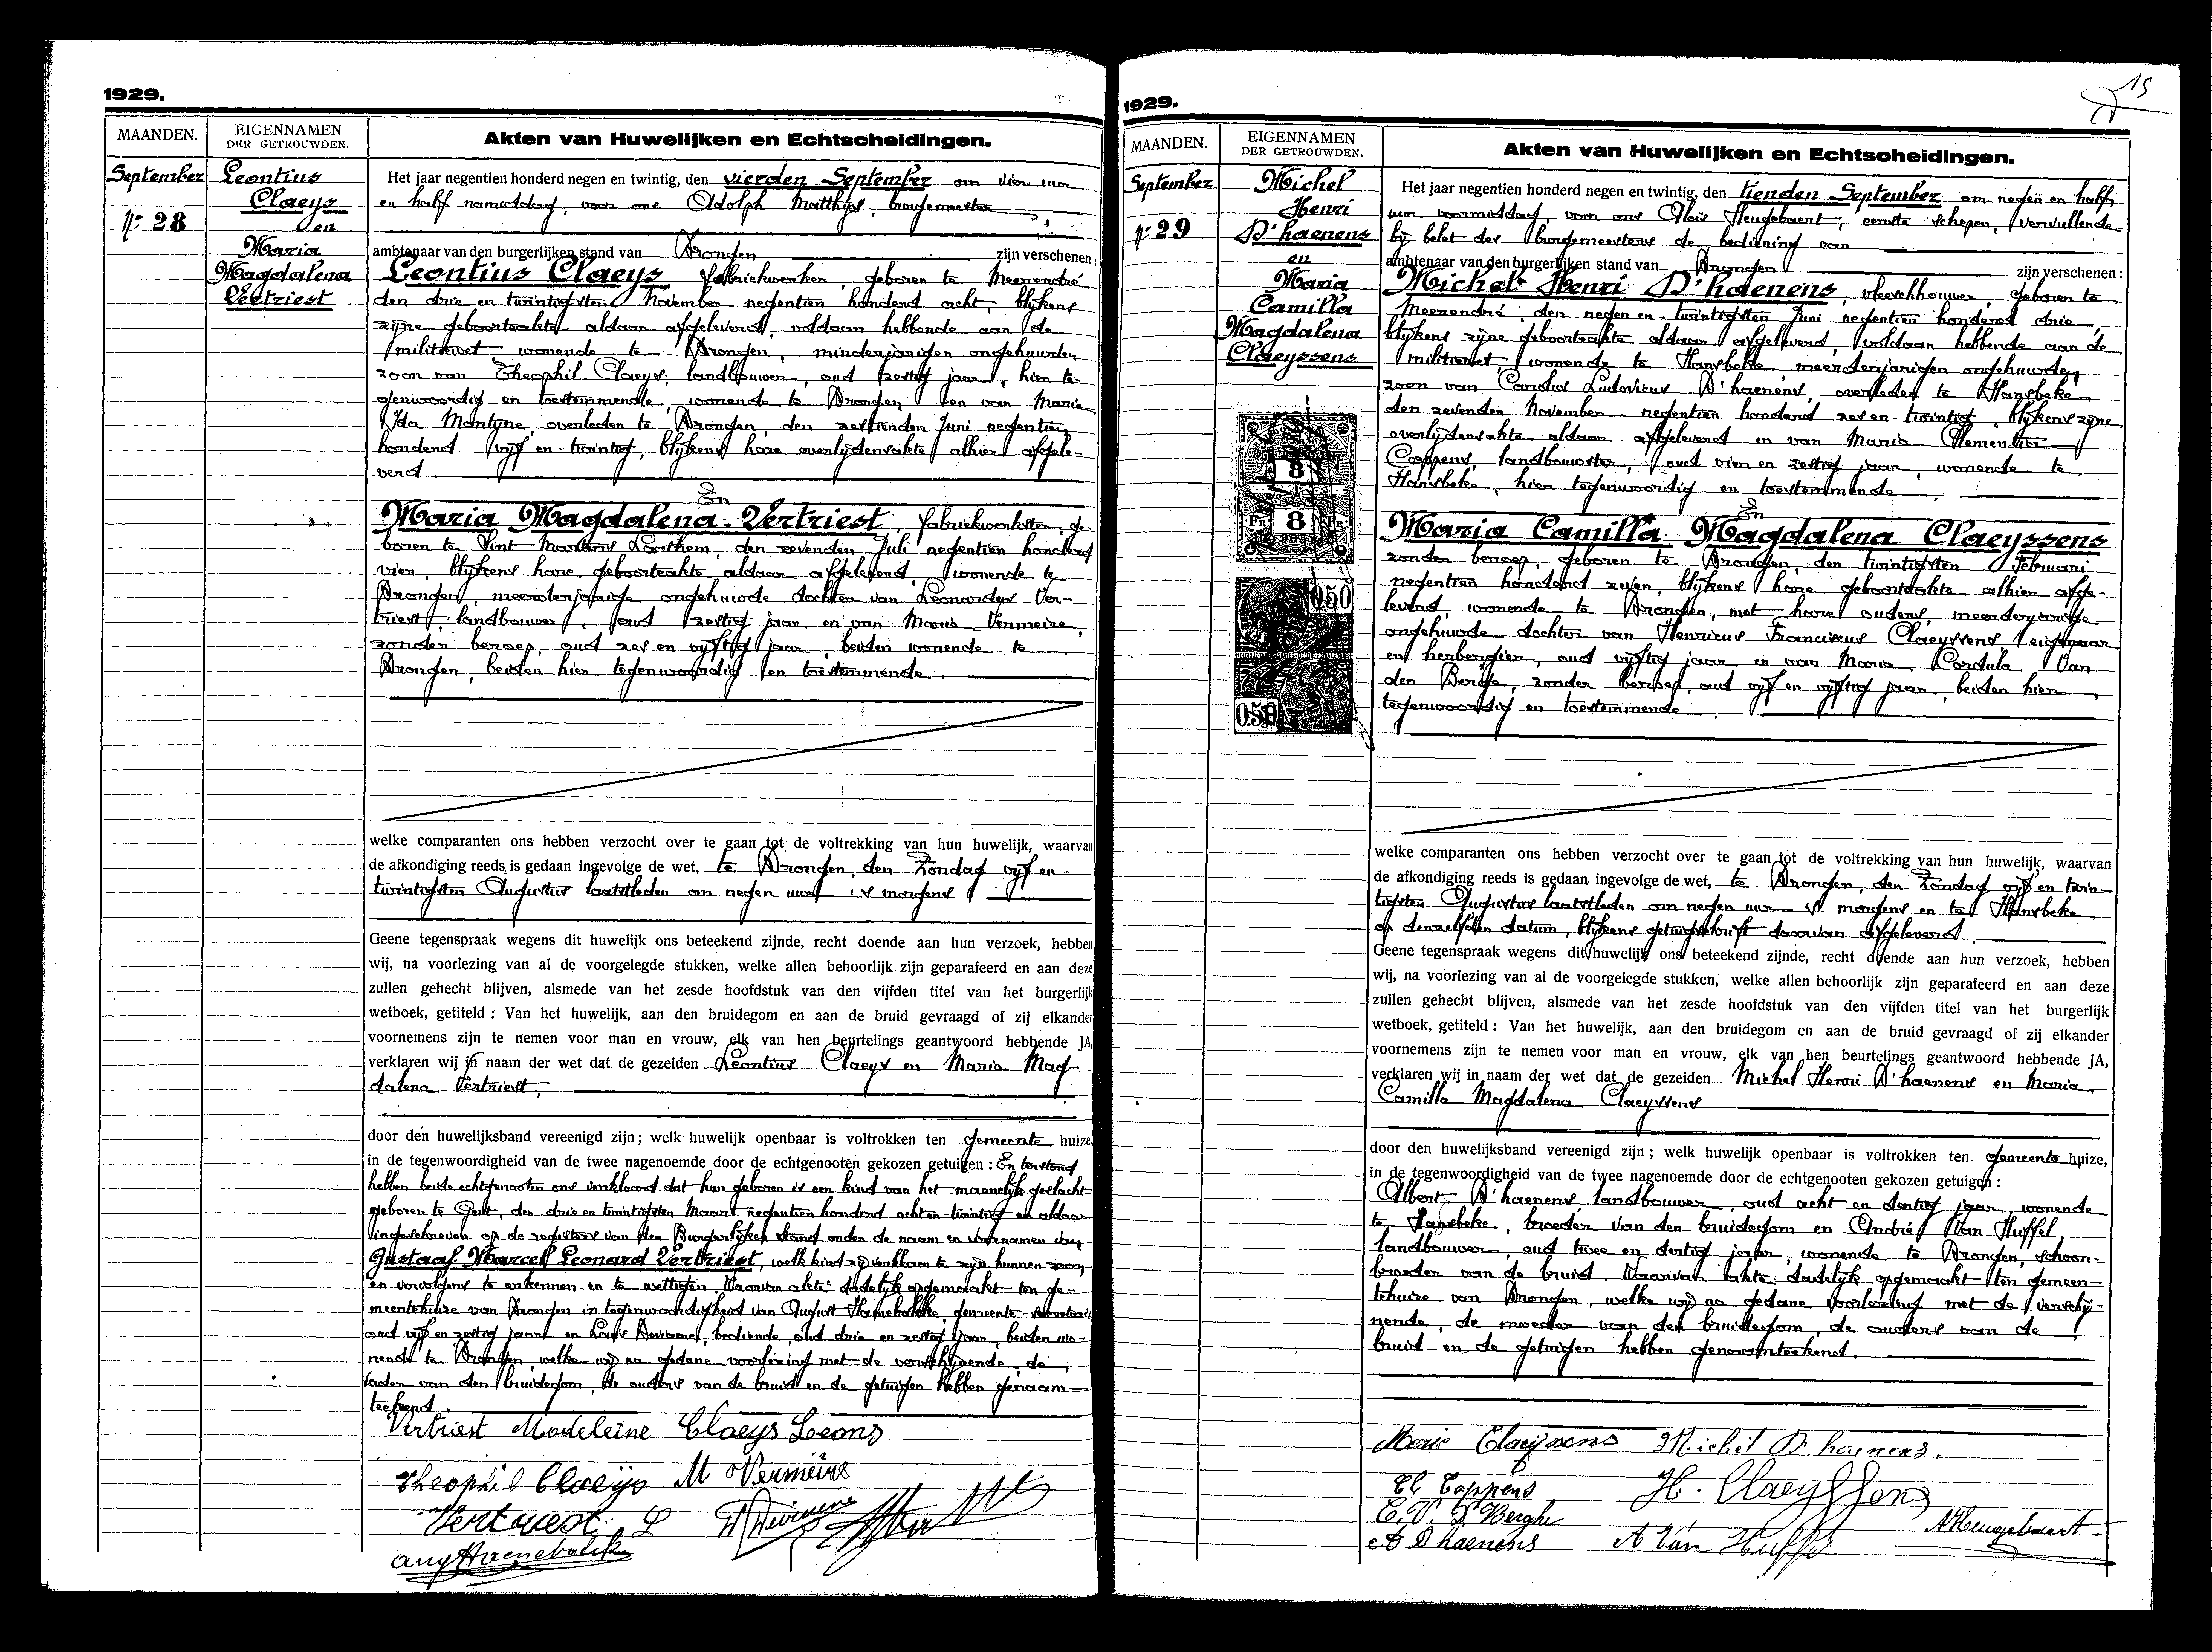 1929.
MAANDEN.
EIGENNAMEN
DER GETROUWDEN.
Akten van Huwelijken en Echtscheidingen.
September
Nr 28
Leontius
Claeys
en
Maria
Magdalena
Vertriest
Het jaar negentien honderd negen en twintig, den vierden September om vier uur
en half namiddag, voor ons Adolph Matthys, burgemeester
ambtenaar van den burgerlijken stand van Drongen zijn verschenen:
Leontius Claeys, fabriekwerker, geboren te Meerendré
den drie en twintigsten November negentien honderd acht, blijkens
zijne geboorteakte aldaar afgeleverd, voldaan hebbende aan de
militiewet, wonende te Drongen, minderjarigen ongehuwden
zoon van Theophil Claeys, landbouwer, oud zestig jaar, hier te-
genwoordig en toestemmende, wonende te Drongen en van Marie
Ida Mortyne, overleden te Drongen, den zestienden Juni negentien
honderd vijf en twintig, blijkens hare overlijdensakte alhier afgele-
verd.
En
Maria Magdalena Vertriest, fabriekwerkster, ge-
boren te Sint Martens Leerne, den zevenden Juli negentien honderd
vier, blijkens hare geboorteakte aldaar afgeleverd, wonende te
Drongen, meerderjarige ongehuwde dochter van Leonardus Ver-
triest, landbouwer, oud zestig jaar en van Maria Vermeire,
zonder beroep, oud zes en vijftig jaar, beiden wonende te
Drongen, beiden hier tegenwoordig en toestemmende.
welke comparanten ons hebben verzocht over te gaan tot de voltrekking van hun huwelijk, waarvan
de afkondiging reeds is gedaan ingevolge de wet, te Drongen, den Zondag vijf en-
twintigsten Augustus laatstleden om negen uur 's morgens
Geene tegenspraak wegens dit huwelijk ons beteekend zijnde, recht doende aan hun verzoek, hebben
wij, na voorlezing van al de voorgelegde stukken, welke allen behoorlijk zijn geparafeerd en aan deze
zullen gehecht blijven, alsmede van het zesde hoofdstuk van den vijfden titel van het burgerlijk
wetboek, getiteld : Van het huwelijk, aan den bruidegom en aan de bruid gevraagd of zij elkander
voornemens zijn te nemen voor man en vrouw, elk van hen beurtelings geantwoord hebbende JA,
verklaren wij in naam der wet dat de gezeiden Leontius Claeys en Maria Mag-
dalena Vertriest,
door den huwelijksband vereenigd zijn; welk huwelijk openbaar is voltrokken ten gemeente huize,
in de tegenwoordigheid van de twee nagenoemde door de echtgenooten gekozen getuigen : En terstond
hebben beide echtgenooten ons verklaard dat hun geboren is een kind van het mannelijk geslacht
geboren te Gent, den drie en twintigsten Maart negentien honderd acht en twintig en aldaar
ingeschreven op de registers van den Burgerlijken stand onder de naam en voornamen van
Gustaaf Marcel Leonard Vertriest, welk kind zij verklaren te zijn hunnen zoon
en vervolgens te erkennen en te wettigen. Waarvan akte dadelijk opgemaakt ten ge-
meentehuize van Drongen in tegenwoordigheid van August Haenebalcke, gemeente-secretaris
oud vijf en zestig jaar en Louis Deviaene, bediende, oud drie en zestig jaar, beiden wo-
nende te Drongen, welke wij na gedane voorlezing met de verschijnende, de
vader van den bruidegom, de ouders van de bruid en de getuigen hebben genaam-
teekend.
Vertriest Madeleine Claeys Leons
Theophil Claeys M Vermeire
Vertriest L
Aug Haenebalck
1929.
15
MAANDEN.
EIGENNAMEN
DER GETROUWDEN.
Akten van Huwelijken en Echtscheidingen.
September
Nr 29
Michel
Henri
D'haenens
en
Maria
Camilla
Magdalena
Claeyssens
8
FR. 8 FR.
0.50
0.50
Het jaar negentien honderd negen en twintig, den tienden September om negen en half
uur voormiddag, voor ons Aloïs Heugebaert, eerste schepen, vervullende
bij belet des burgemeesters de bediening van
ambtenaar van den burgerlijken stand van Drongen zijn verschenen :
Michel Henri D'haenens, vleeschhouwer, geboren te
Meerendré, den negen en twintigsten Juni negentien honderd drie,
blijkens zijne geboorteakte aldaar afgeleverd, voldaan hebbende aan de
militiewet, wonende te Hansbeke meerderjarigen ongehuwden
zoon van Carolus Ludovicus D'haenens, overleden te Hansbeke
den zevenden November negentien honderd zes en twintig, blijkens zijne
overlijdensakte aldaar afgeleverd en van Maria Clementia
Coppens, landbouwster, oud vier en zestig jaar, wonende te
Hansbeke, hier tegenwoordig en toestemmende.
En
Maria Camilla Magdalena Claeyssens
zonder beroep, geboren te Drongen, den twintigsten Februari
negentien honderd zeven, blijkens hare geboorteakte alhier afge-
leverd, wonende te Drongen, met hare ouders, meerderjarige
ongehuwde dochter van Henricus Franciscus Claeyssens, eigenaar
en herbergier, oud vijftig jaar en van Maria Cordula Van
den Berghe, zonder beroep, oud vijf en vijftig jaar, beiden hier
tegenwoordig en toestemmende.
welke comparanten ons hebben verzocht over te gaan tot de voltrekking van hun huwelijk, waarvan
de afkondiging reeds is gedaan ingevolge de wet, te Drongen, den Zondag vijf en twin-
tigsten Augustus laatstleden om negen uur 's morgens en te Hansbeke
op denzelfden datum, blijkens getuigschrift daarvan afgeleverd.
Geene tegenspraak wegens dit huwelijk ons beteekend zijnde, recht doende aan hun verzoek, hebben
wij, na voorlezing van al de voorgelegde stukken, welke allen behoorlijk zijn geparafeerd en aan deze
zullen gehecht blijven, alsmede van het zesde hoofdstuk van den vijfden titel van het burgerlijk
wetboek, getiteld : Van het huwelijk, aan den bruidegom en aan de bruid gevraagd of zij elkander
voornemens zijn te nemen voor man en vrouw, elk van hen beurtelings geantwoord hebbende JA,
verklaren wij in naam der wet dat de gezeiden Michel Henri D'haenens en Maria
Camilla Magdalena Claeyssens
door den huwelijksband vereenigd zijn; welk huwelijk openbaar is voltrokken ten gemeente huize,
in de tegenwoordigheid van de twee nagenoemde door de echtgenooten gekozen getuigen :
Albert D'haenens, landbouwer, oud acht en dertig jaar, wonende
te Hansbeke, broeder van den bruidegom en André Van Huffel
landbouwer, oud twee en dertig jaar, wonende te Drongen, schoon-
broeder van de bruid. Waarvan akte dadelijk opgemaakt ten gemeen-
tehuize van Drongen, welke wij na gedane voorlezing met de verschij-
nende, de moeder van den bruidegom, de ouders van de
bruid en de getuigen hebben genaamteekend.
Marie Claeyssens Michel D'haenens.
Cl Coppens H. Claeyssens
C. V. D. Berghe A Heugebaert
A D'haenens A Van Huffel